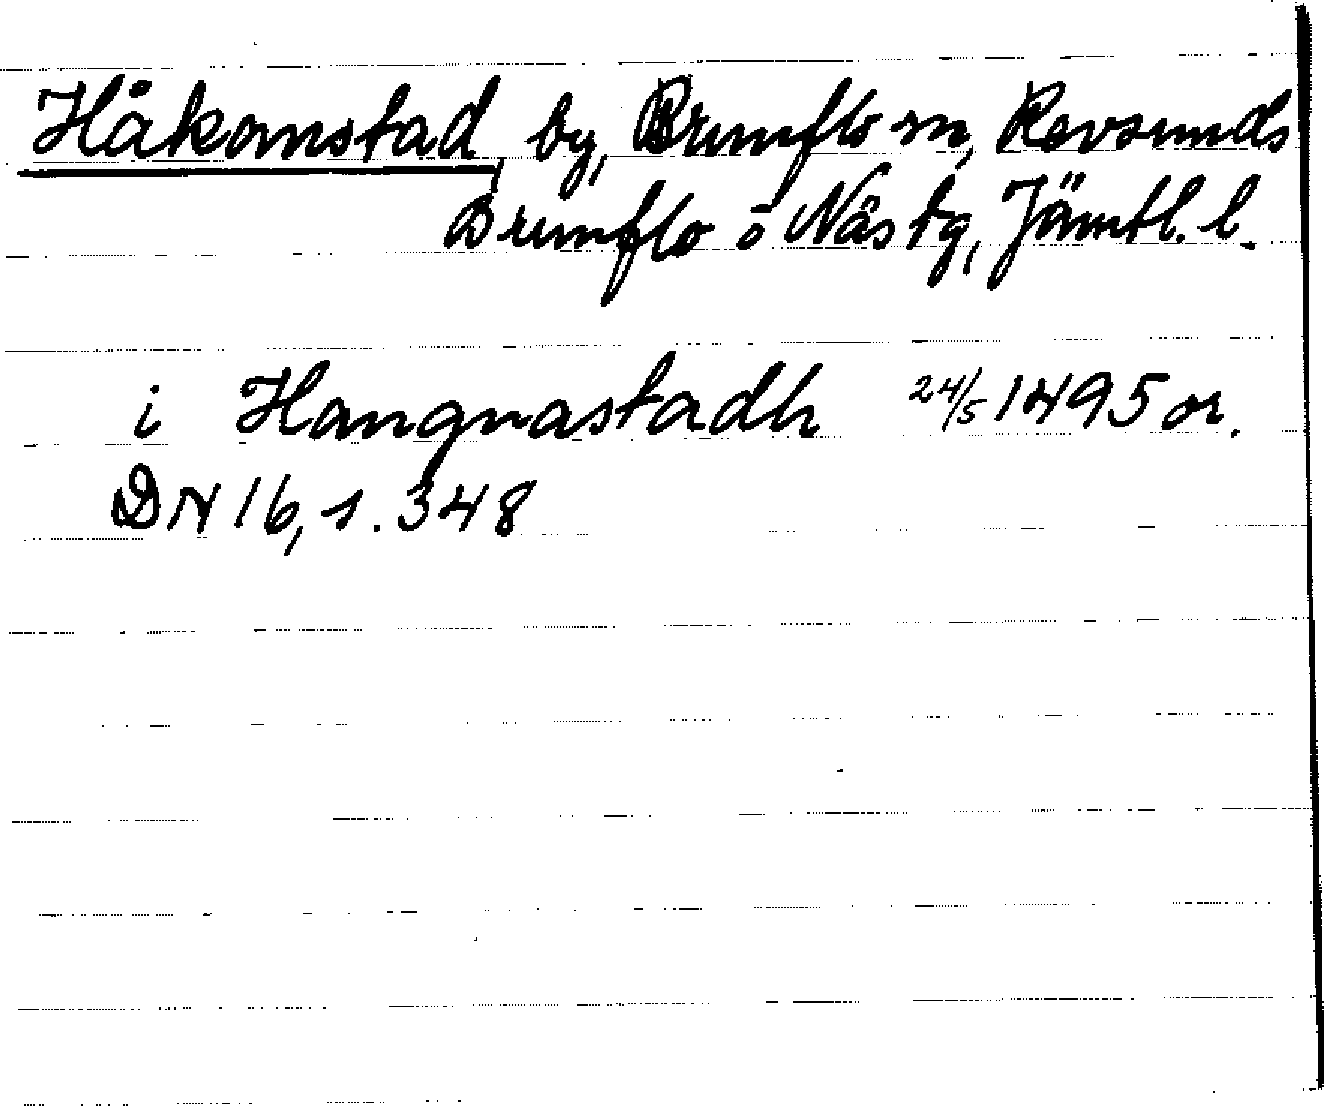 Håkanstad, by, Brunflo sn, Revsunds
Brunflo o Näs tg, Jämtl. l.
i Hangnastadh 24/5 1495 or.
DN 16, s. 348